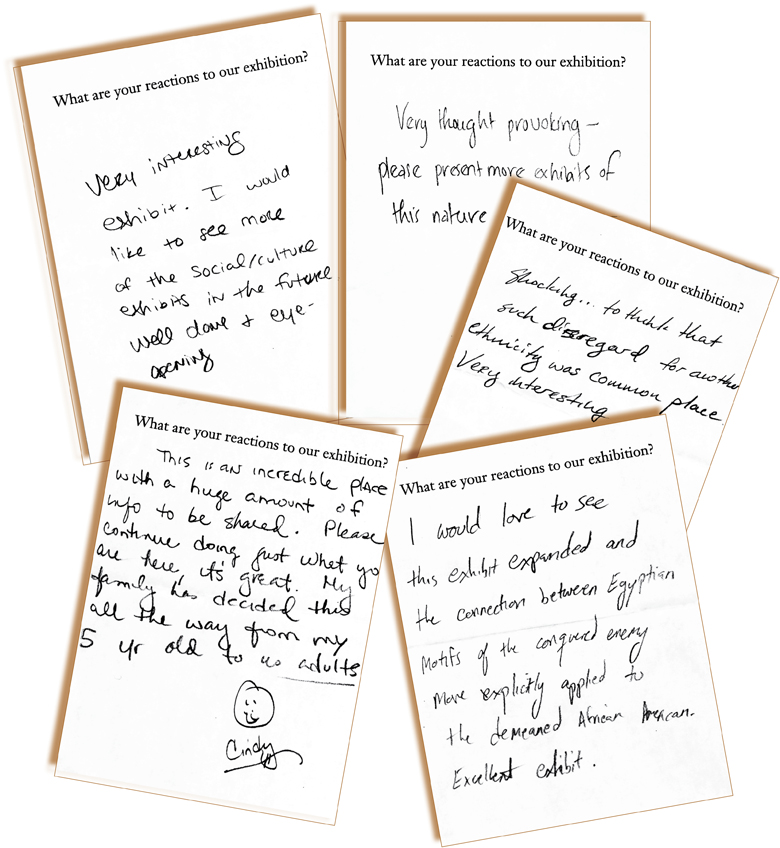 What are your reactions to our exhibition?
Very interesting
exhibit. I would
like to see more
of the social/culture
exhibits in the future
well done & eye-
opening
What are your reactions to our exhibition?
Very thought provoking –
please present more exhibits of
this nature
What are your reactions to our exhibition?
Shocking... to think that
such disregard for another
ethnicity was common place.
Very interesting
What are your reactions to our exhibition?
This is an incredible place
with a huge amount of
info to be shared. Please
continue doing just what yo
are here, it's great. My
family has decided this
all the way from my
5 yr old to us adults
Cindy
What are your reactions to our exhibition?
I would love to see
this exhibit expanded and
the connection between Egyptian
Motifs of the conquered enemy
more explicitly applied to
the demeaned African American.
Excellent exhibit.